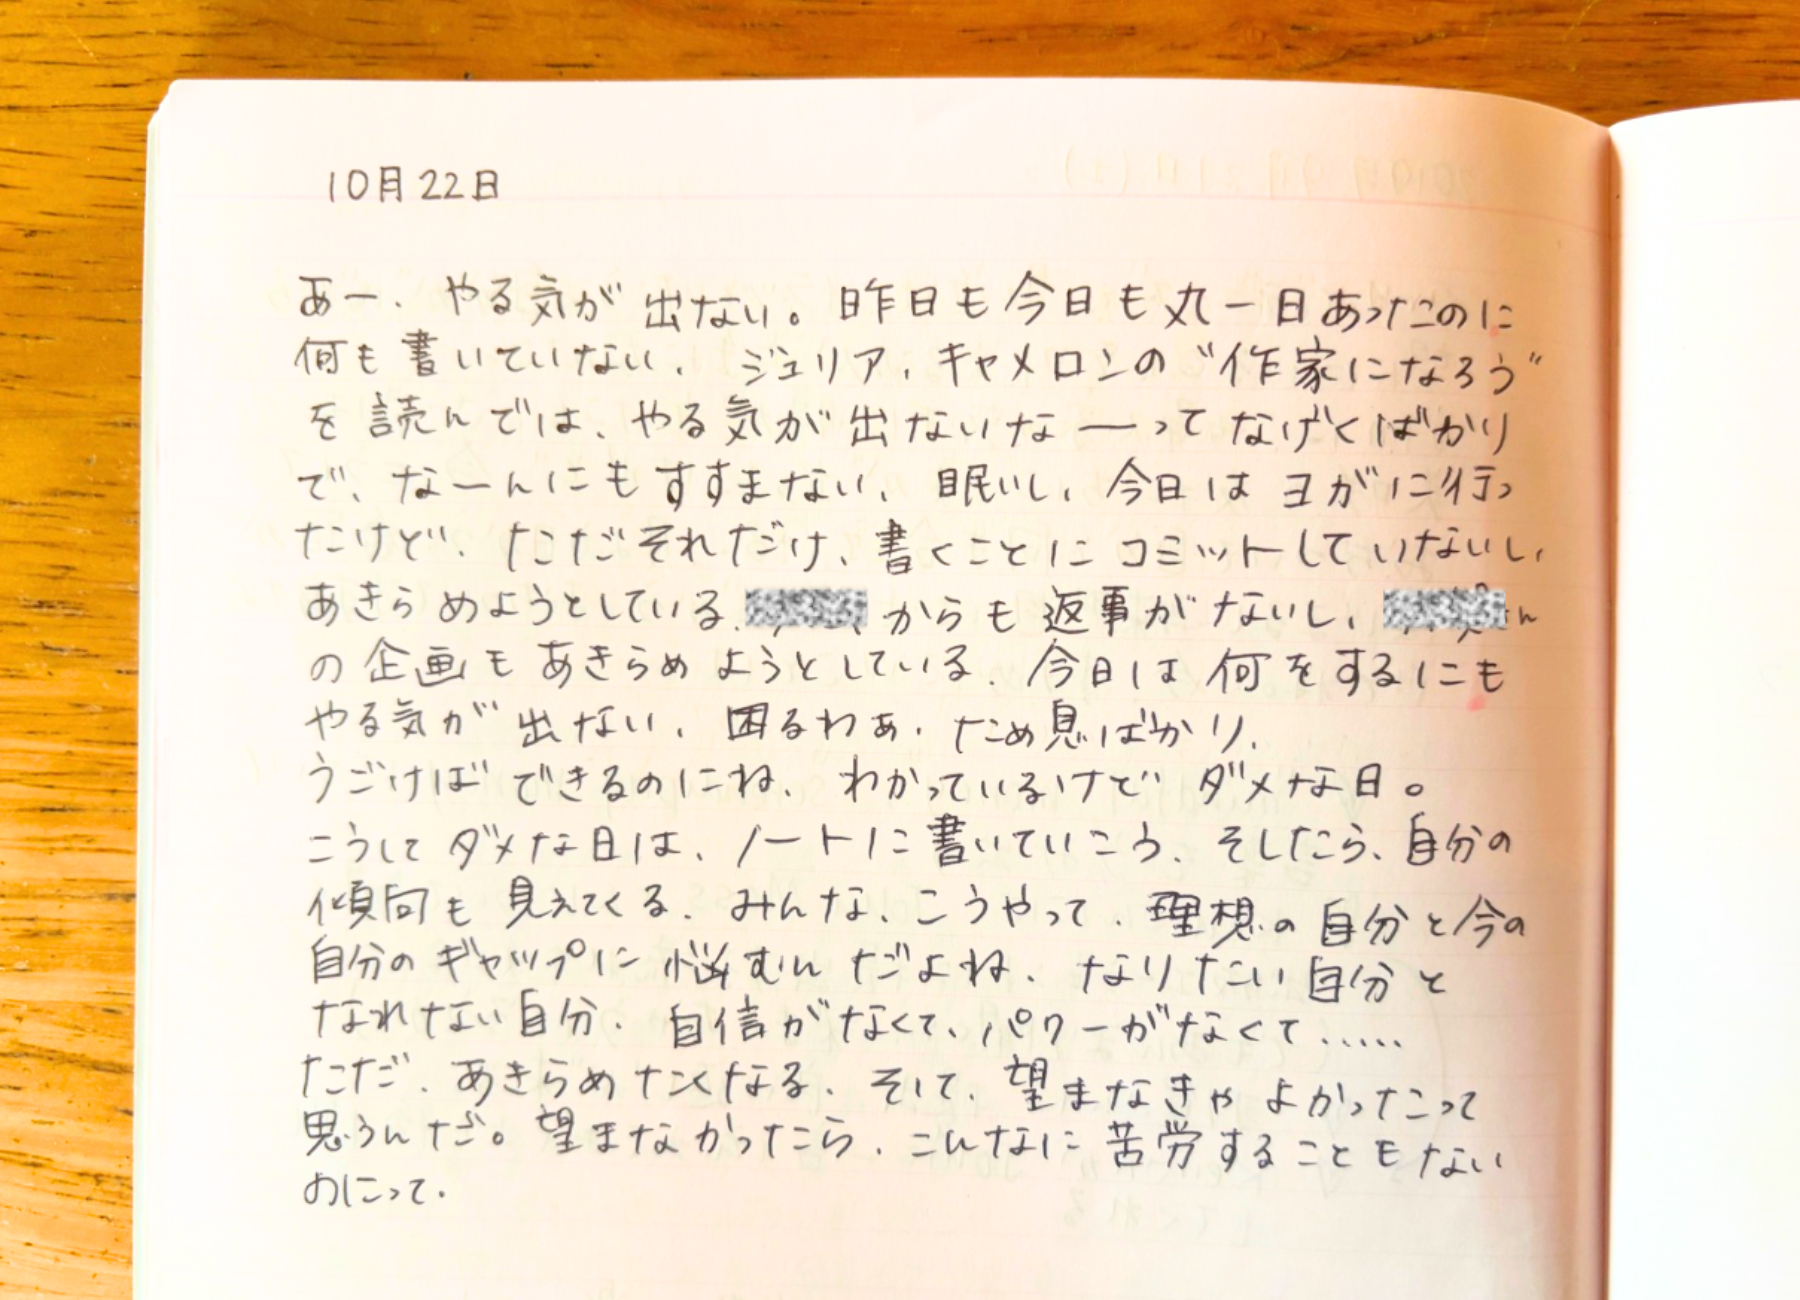 10月22日
あー、やる気が出ない。昨日も今日も丸一日あったのに
何も書いていない、ジュリア、キャメロンの"作家になろう"
を読んでは、やる気が出ないなーってなげくばかり
で、なーんにもすすまない、眠いし、今日はヨガに行っ
たけど、ただそれだけ、書くことにコミットしていないし、
あきらめようとしている、からも返事がないし、
の企画もあきらめようとしている、今日は何をするにも
やる気が出ない、困るわぁ、ため息ばかり、
うごけばできるのにね、わかっているけどダメな日。
こうしてダメな日は、ノートに書いていこう、そしたら、自分の
傾向も見えてくる、みんな、こうやって、理想の自分と今の
自分のギャップに悩むんだよね、なりたい自分と
なれない自分、自信がなくて、パワーがなくて.....
ただ、あきらめたくなる、そして、望まなきゃよかったって
思うんだ。望まなかったら、こんなに苦労することもない
のにって、